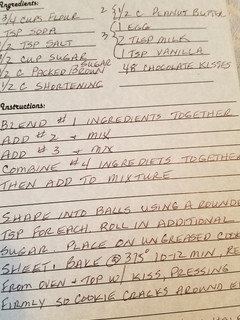 Ingredients:
3/4 CUPS FLOUR
TSP SODA
1/2 TSP SALT
1/2 CUP SUGAR
1/2 C PACKED BROWN SUGAR
1/2 C SHORTENING
2 { 1/2 C PEANUT BUTTER
1 EGG
3 { 2 TBSP MILK
1 TSP VANILLA
48 CHOCOLATE KISSES
Instructions:
BLEND #1 INGREDIENTS TOGETHER
ADD #2 + MIX
ADD #3 + MIX
COMBINE #4 INGREDIETS TOGETHE
THEN ADD TO MIXTURE
SHAPE INTO BALLS USING A ROUNDE
TSP FOR EACH. ROLL IN ADDITIONAL
SUGAR. PLACE ON UNGREASED COOK
SHEET. BAKE @ 375° 10-12 MIN, RE
FROM OVEN + TOP W/ KISS, PRESSING
FIRMLY SO COOKIE CRACKS AROUND E